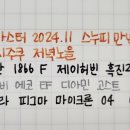 스타 2024.11 스누피 만년
시2주 저녁노을
한 1866 F 제이허빈 흑진
비 에코 EF 디아민 고스트
라 피그마 마이크론 04